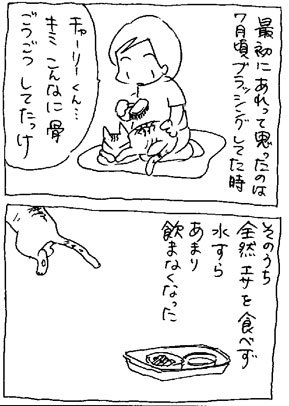 最初にあれって思ったのは
7月頃ブラッシングしてた時
チャーリーくん…
キミ こんなに骨
ごうごつ してたっけ
そのうち
全然エサを食べず
水すら
あまり
飲まなくなった